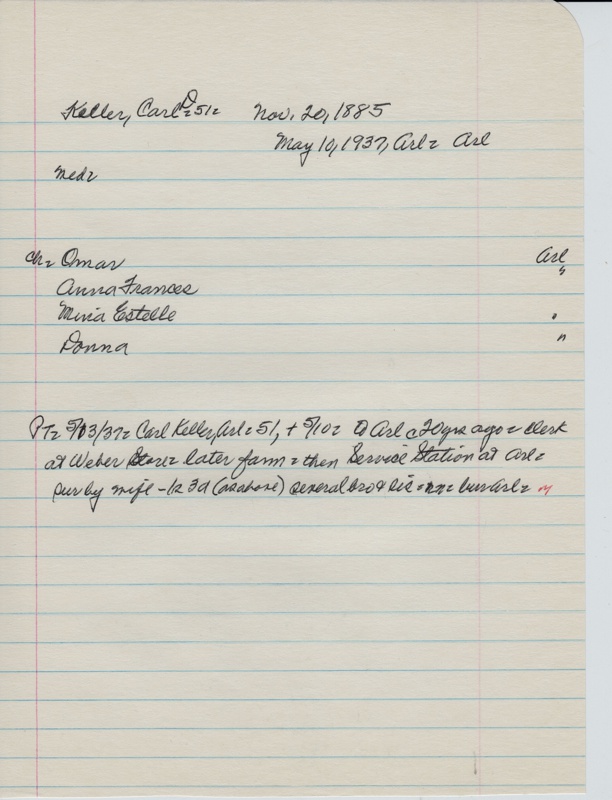 Keller, Carl D = 51 = Nov. 20, 1885
May 10, 1937, Arl = Arl
Med =
ch = Omar Arl
Anna Frances "
Mina Estelle "
Donna "
PT = 5/13/37 = Carl Keller, Arl = 51, + 5/10 = to Arl c 20 yrs ago = clerk
at Weber Store = later farm = then Service Station at Arl =
sur by wife - 1s 3d (as above) several bro & sis = nn = bur Arl = m